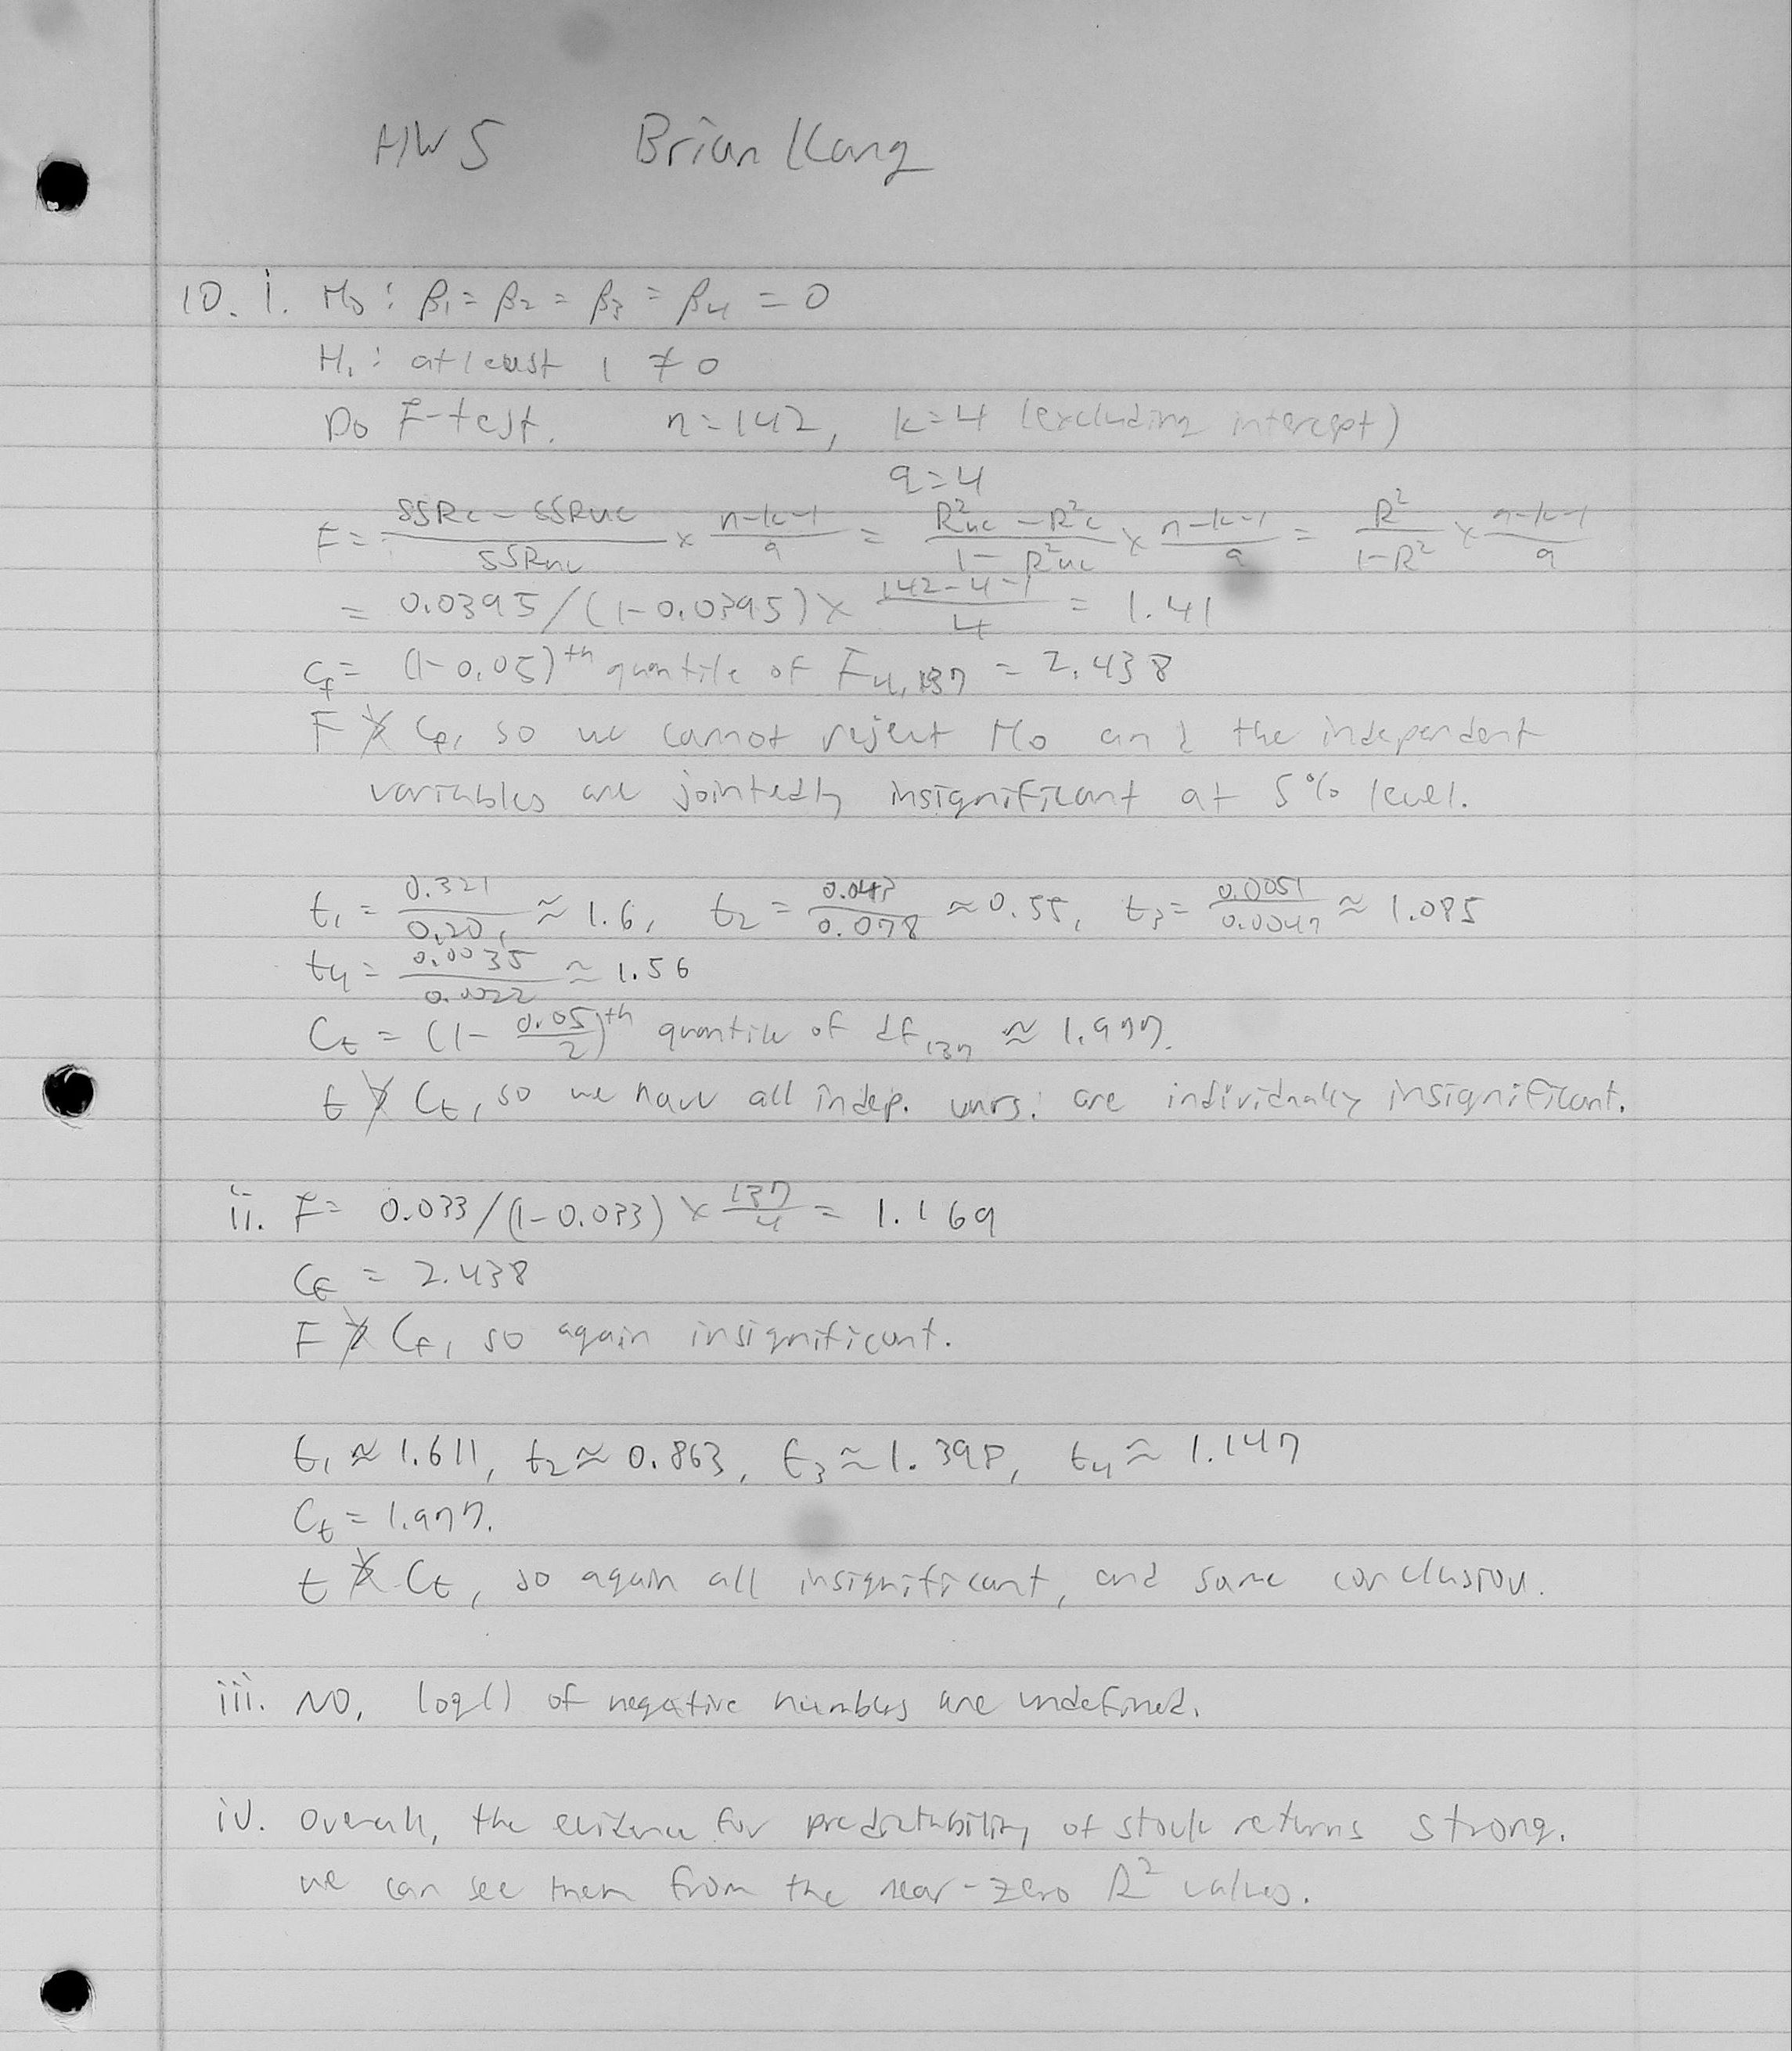 HW 5 Brian Kang
10. i. H₀ : β₁ = β₂ = β₃ = β₄ = 0
H₁ : at least 1 ≠ 0
Do F-test. n = 142, k = 4 (excluding intercept)
q = 4
F = (SSRc - SSRuc)/SSRuc × (n-k-1)/q = (R²uc - R²c)/(1 - R²uc) × (n-k-1)/q = R²/(1-R²) × (n-k-1)/q
= 0.0395/(1-0.0395) × (142-4-1)/4 = 1.41
C_F = (1-0.05)^th quantile of F₄,₁₃₇ = 2.438
F ≯ C_F, so we cannot reject H₀ and the independent
variables are jointedly insignificant at 5% level.
t₁ = 0.321/0.201 ≈ 1.6, t₂ = 0.043/0.078 ≈ 0.55, t₃ = 0.0051/0.0047 ≈ 1.085
t₄ = 0.0035/0.0022 ≈ 1.56
C_t = (1 - 0.05/2)^th quantile of df₁₃₇ ≈ 1.977.
t ≯ C_t, so we have all indep. vars. are individually insignificant.
ii. F = 0.033/(1-0.033) × 137/4 = 1.169
C_F = 2.438
F ≯ C_F, so again insignificant.
t₁ ≈ 1.611, t₂ ≈ 0.863, t₃ ≈ 1.398, t₄ ≈ 1.147
C_t = 1.977.
t ≯ C_t, so again all insignificant, and same conclusion.
iii. No, log() of negative numbers are undefined.
iv. Overall, the evidence for predictability of stock returns strong.
we can see them from the near-zero R² values.